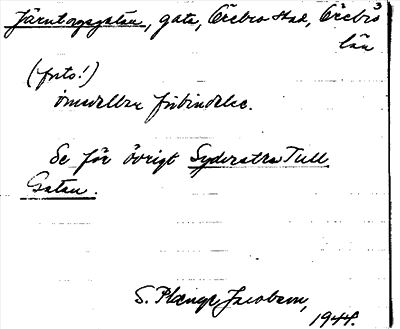 Järntorgsgatan, gata, Örebro stad, Örebro
län
(foto!)
omedelbar förbindelse.
Se för övrigt Sydvestra Tull
Gatan.
S. Plænge Jacobson,
1944.